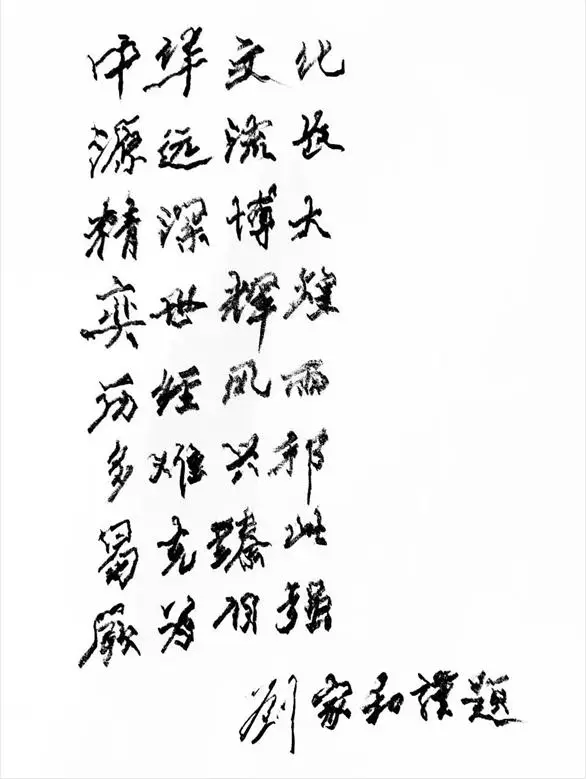 中华文化
源远流长
精深博大
奕世辉煌
历经风雨
多难兴邦
曷克臻此
厥为自强
刘家和谨题